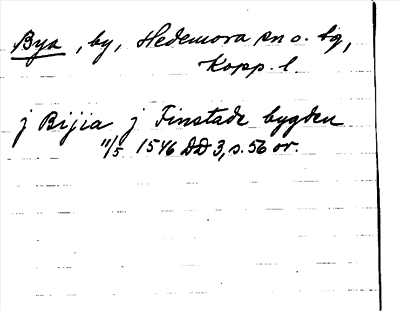 Bya, by, Hedemora sn o. tg,
Kopp. l
j Bijia j Finstade bygden
11/5 1546 DD 3, s. 56 or.